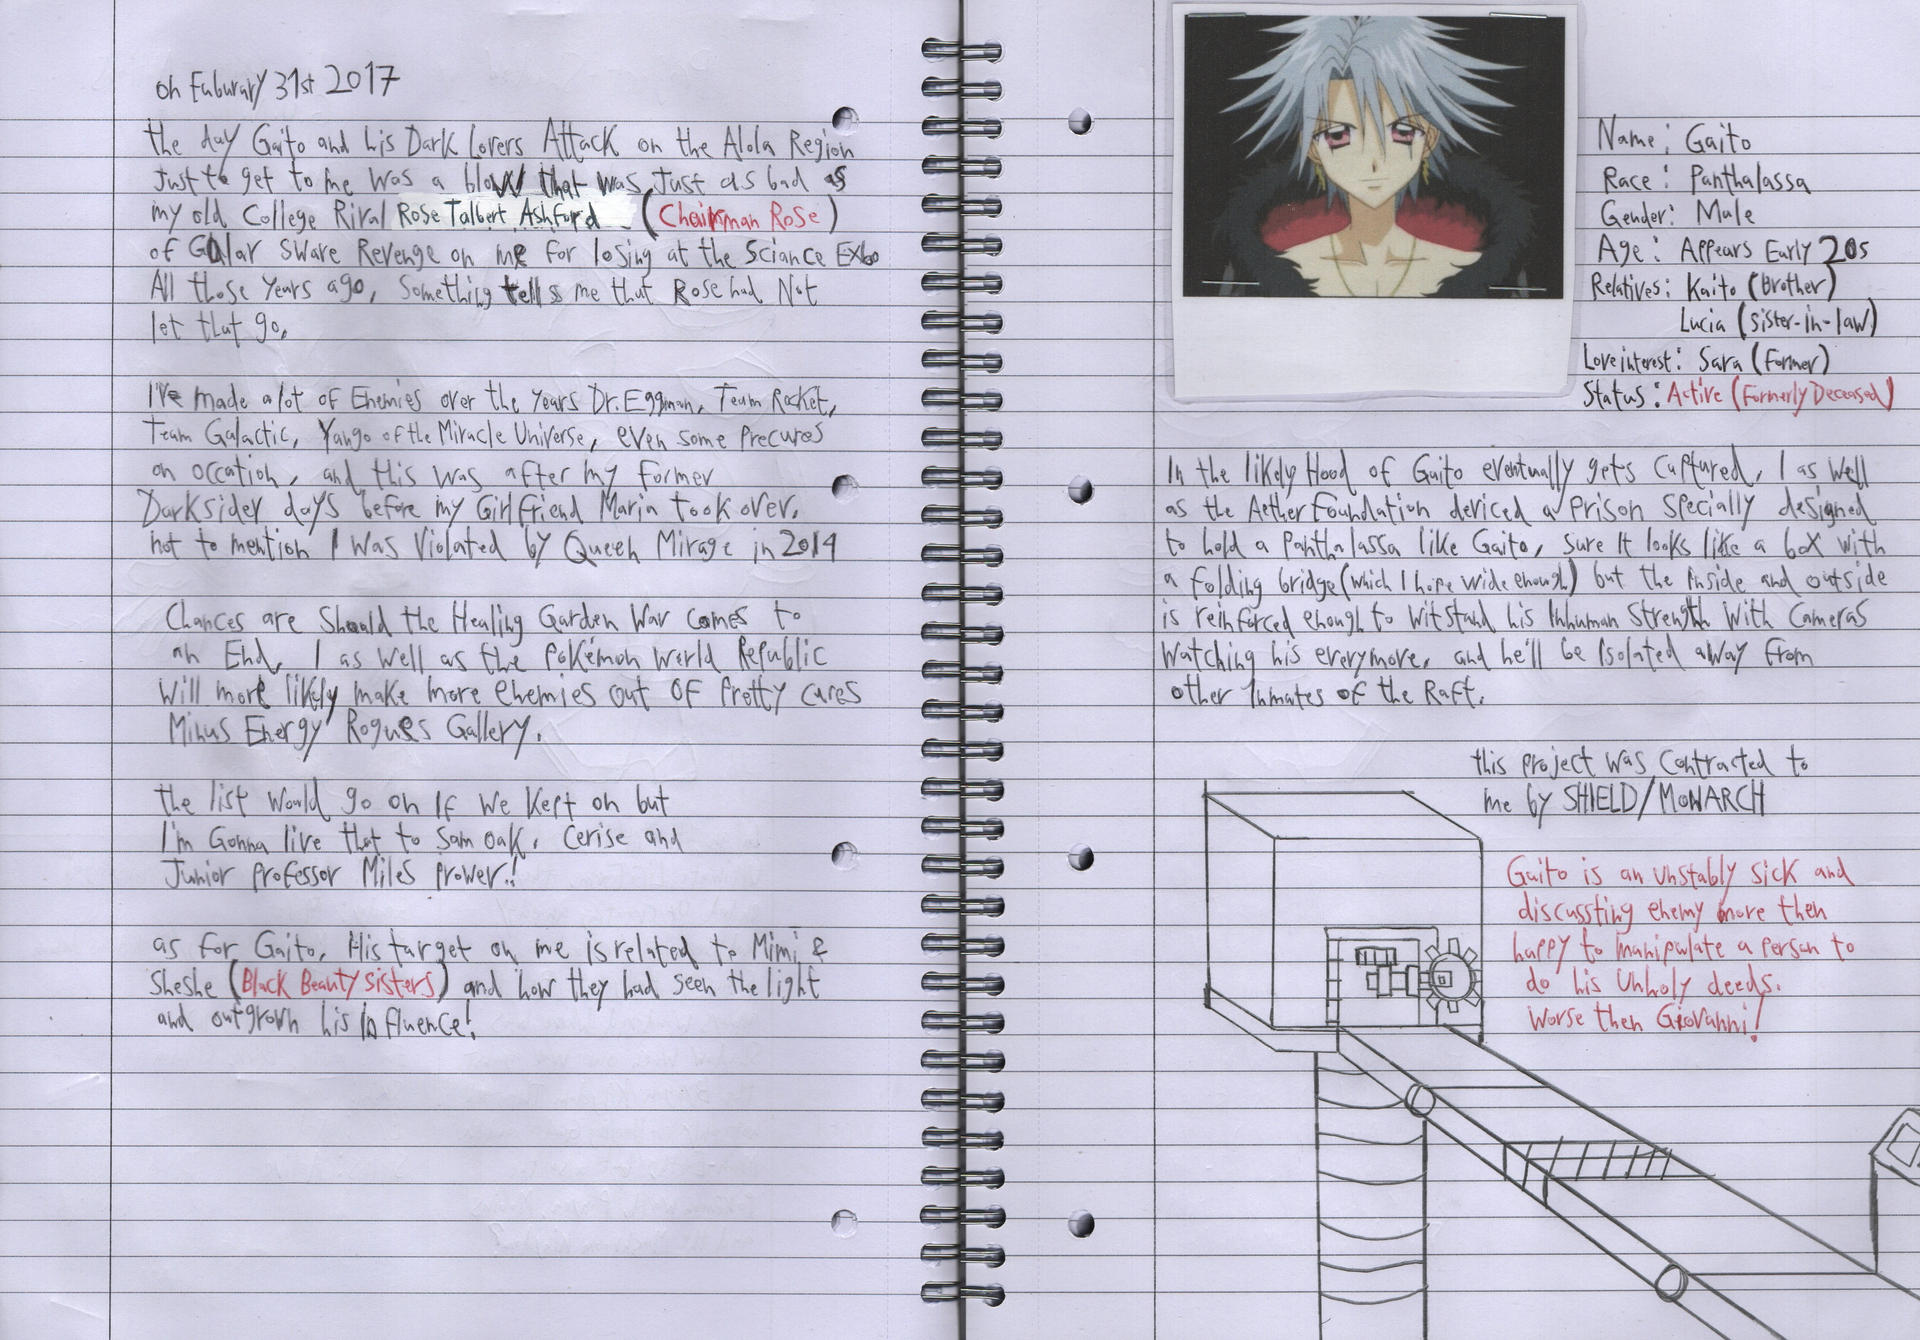 on Euburary 31st 2017
the day Gaito and his Dark Lovers Attack on the Alola Region
Just to get to me was a blow that was Just as bad as
my old College Rival Rose Talbert Ashford (Chairman Rose)
of Galar sware Revenge on me for losing at the Sciance Exbo
All those Years ago, Something tells me that Rose had Not
let that go.
I've made alot of Enemies over the Years Dr.Eggman, Team Rocket,
Team Galactic, Yango of the Miracle Universe, even some Precures
on occation, and this was after my former
Darksider days before my Girlfriend Maria took over.
not to mention I was Violated by Queen Mirage in 2014
Chances are Should the Healing Garden War comes to
an End, I as well as the Pokémon World Republic
will more likely make more enemies out OF Pretty cures
Minus Energy Rogues Gallery.
the list would go on If we kept on but
I'm Gonna live that to Sam oak, Cerise and
Junior Professor Miles prower!
as for Gaito, His target on me is related to Mimi &
Sheshe (Black Beauty Sisters) and how they had seen the light
and outgrown his Influence!
Name: Gaito
Race: Panthalassa
Gender: Male
Age: Appears Early 20s
Relatives: Kaito (Brother)
Lucia (Sister-in-law)
Love interest: Sara (Former)
Status: Active (Formerly Deceased)
In the likely Hood of Gaito eventually gets Captured, I as well
as the Aether Foundation deviced a Prison Specially designed
to hold a Panthalassa like Gaito, Sure It looks like a box with
a folding bridge (which I hope wide enough) but the Inside and outside
is reinforced enough to witstand his Inhuman Strength With Cameras
Watching his everymove, and he'll be Isolated away from
other Inmates of the Raft.
this project was Contracted to
me by SHIELD/MONARCH
Gaito is an unstably sick and
discussting enemy more then
happy to manipulate a person to
do his Unholy deeds.
worse then Giovanni!